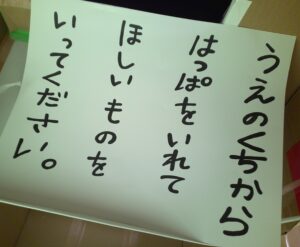 うえのくちから
はっぱをいれて
ほしいものを
いってください。